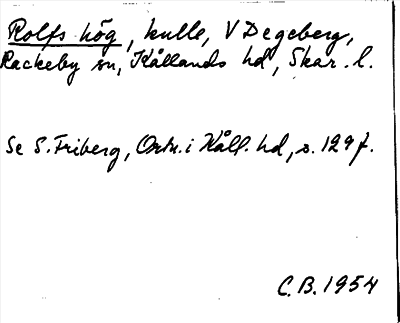 Rolfs hög, kulle, V Degeberg,
Rackeby sn, Kållands hd, Skar. l.
Se S. Friberg, Ortn. i Kåll. hd, s. 129 f.
C.B. 1954